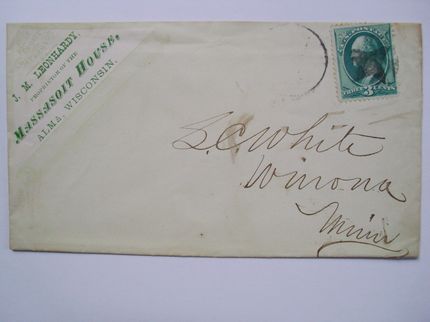 J. M. LEONHARDY,
PROPRIETOR OF THE
MASSASOIT HOUSE,
ALMA, WISCONSIN.
U.S. POSTAGE
THREE 3 CENTS
S. C. White
Winona
Minn